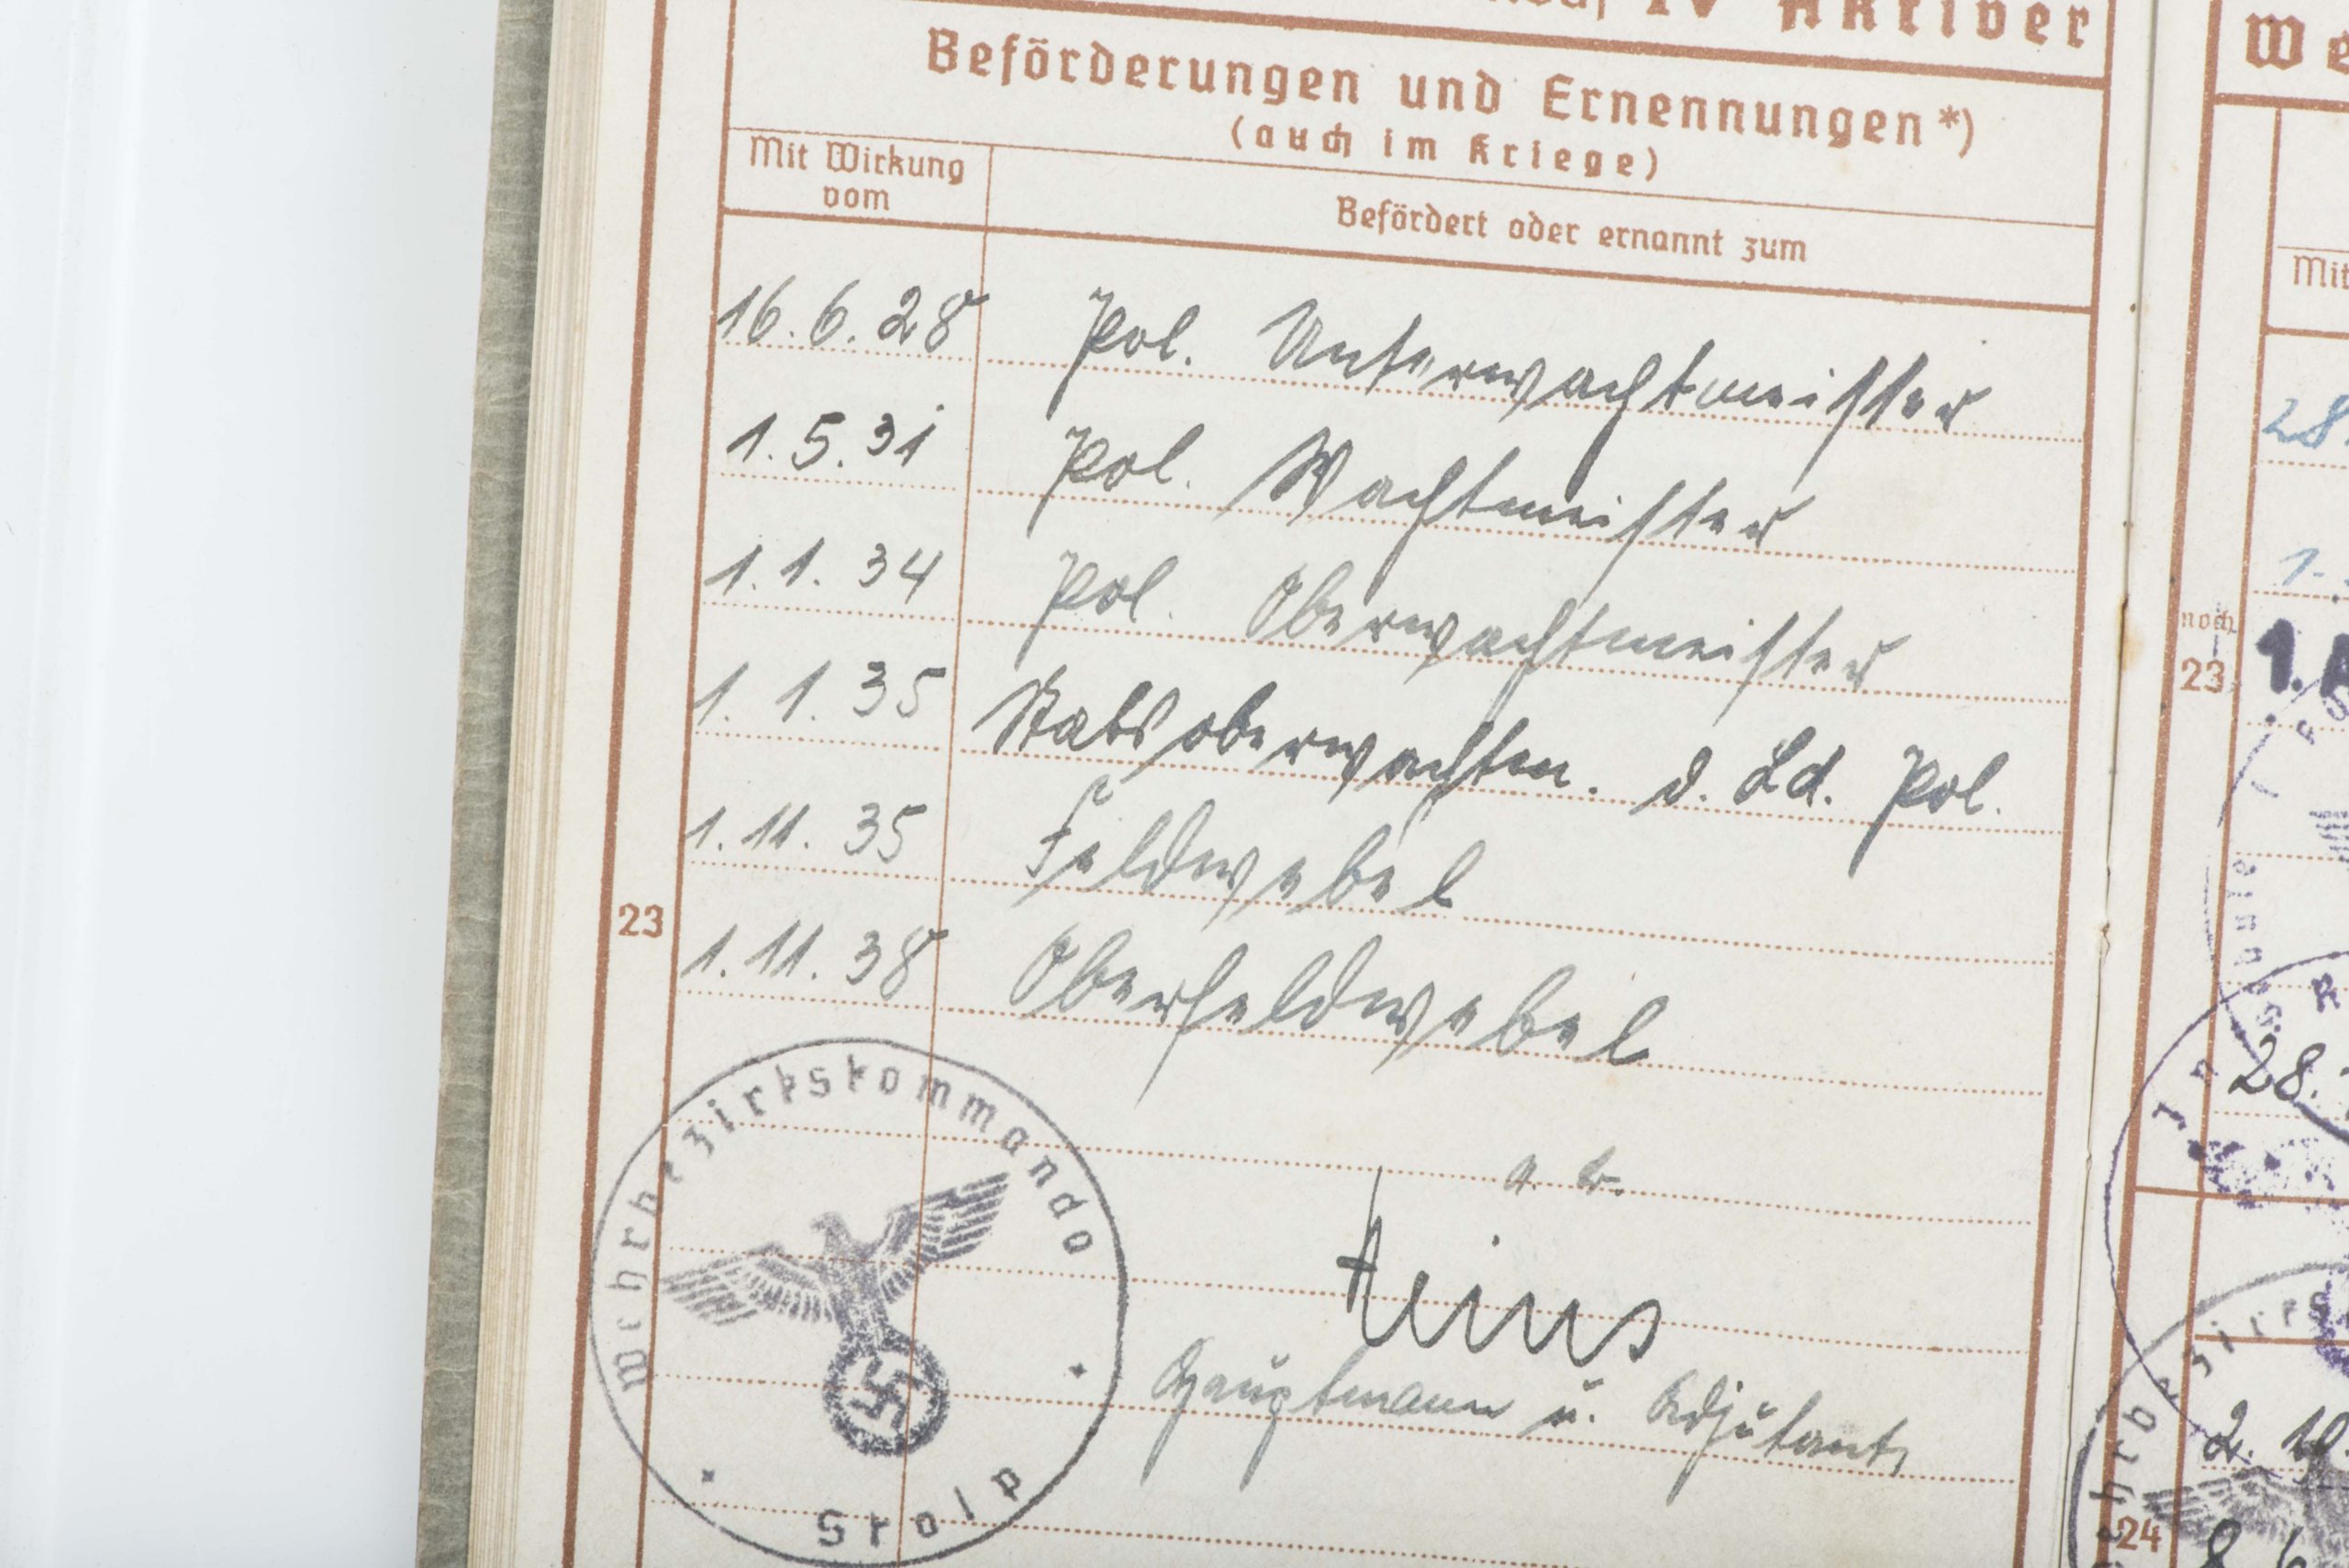 IV Aktiver
Beförderungen und Ernennungen*)
(auch im Kriege)
Mit Wirkung
vom
Befördert oder ernannt zum
16.6.28 Pol. Unterwachtmeister
1.5.31 Pol. Wachtmeister
1.1.34 Pol. Oberwachtmeister
1.1.35 Stabsoberwachtm. d. Ld. Pol.
1.11.35 Feldwebel
23
1.11.38 Oberfeldwebel
Wehrbezirkskommando
Stolp
Hauptmann u. Adjutant
We
Mit
28.
1.
noch
23
1.
28.
2. 10.
24